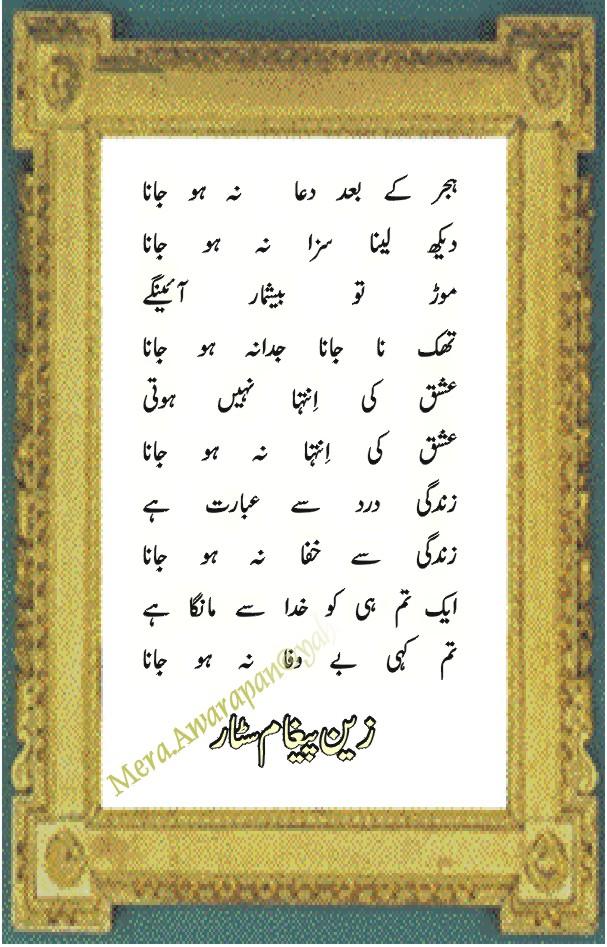 ہجر کے بعد دعا نہ ہو جانا
دیکھ لینا سزا نہ ہو جانا
موڑ تو بیشمار آئینگے
تھک نا جانا جدانہ ہو جانا
عشق کی اِنتہا نہیں ہوتی
عشق کی اِنتہا نہ ہو جانا
زندگی درد سے عبارت ہے
زندگی سے خفا نہ ہو جانا
ایک تم ہی کو خدا سے مانگا ہے
تم کہی بے وفا نہ ہو جانا
زین پیغام سٹار
Mera.Awarapan